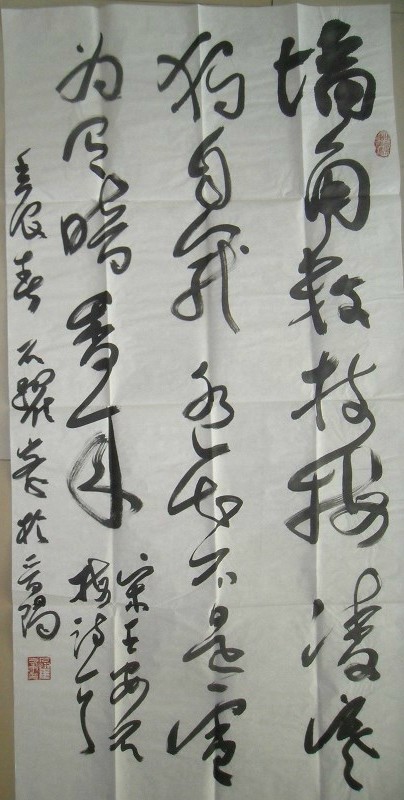 墙角数枝梅凌寒
独自开遥知不是雪
为有暗香来
宋王安石
梅诗一首
壬辰春石於晋阳